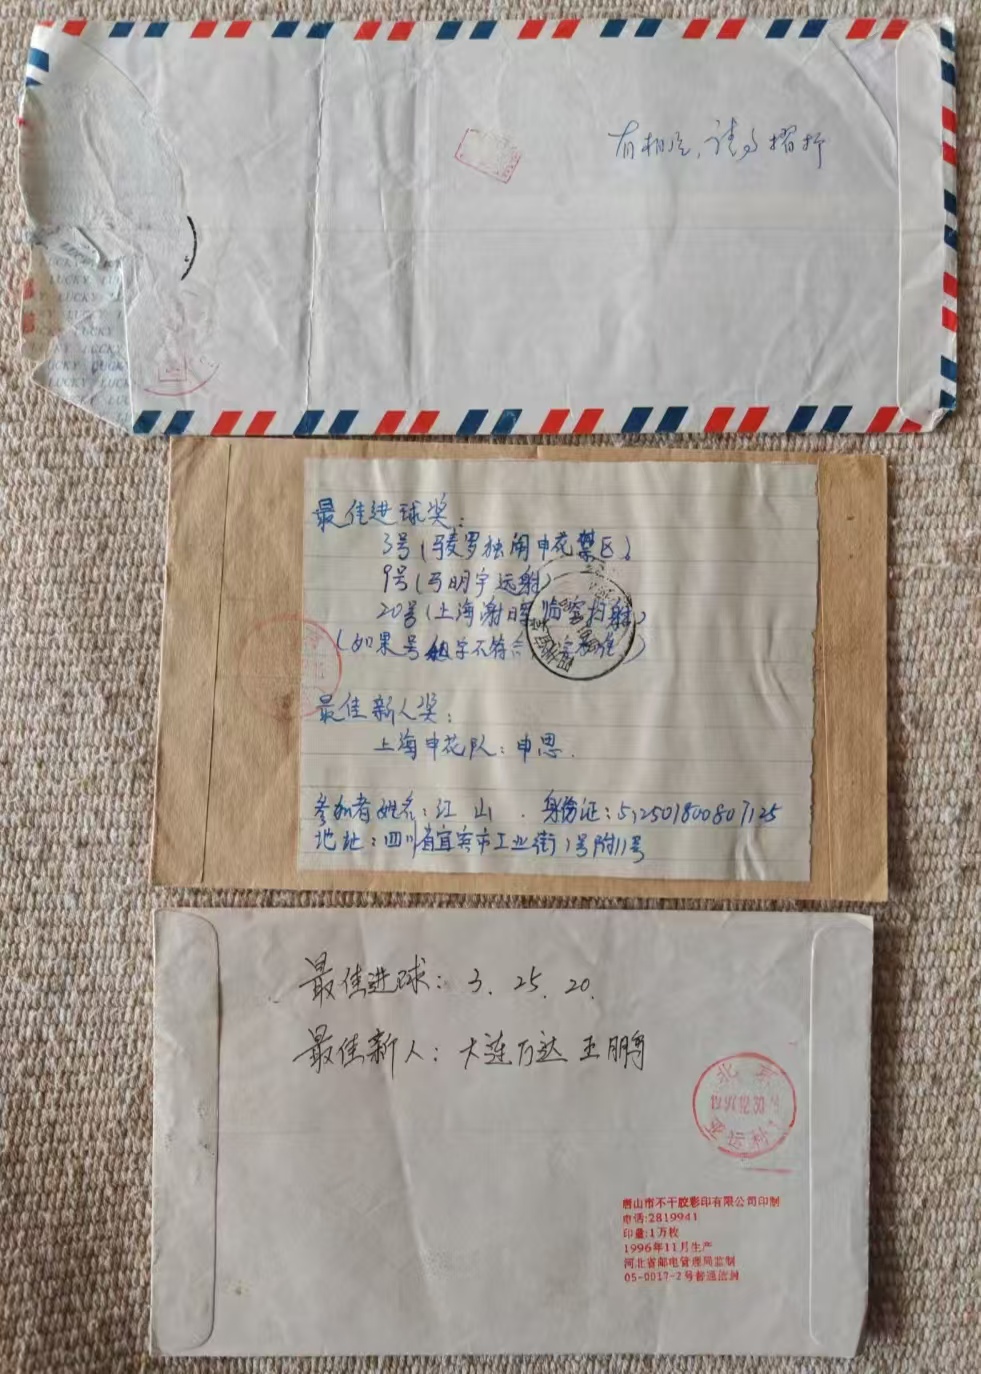 有相片，请勿折
LUCKY LUCKY
最佳进球奖：
3号(麦罗独闯申花禁区)
9号(马明宇远射)
20号(上海谢晖临空抽射)
(如果号组字不符合
最佳新人奖：
上海申花队：申思.
参加者姓名：江山. 身份证：
地址：四川省宜宾市工业街1号附11号
最佳进球：3. 25. 20.
最佳新人：大连万达 王鹏
北京
亚运村
唐山市不干胶彩印有限公司印制
电话:2819941
印量:1万枚
1996年11月生产
河北省邮电管理局监制
05-0017-2号普通信封